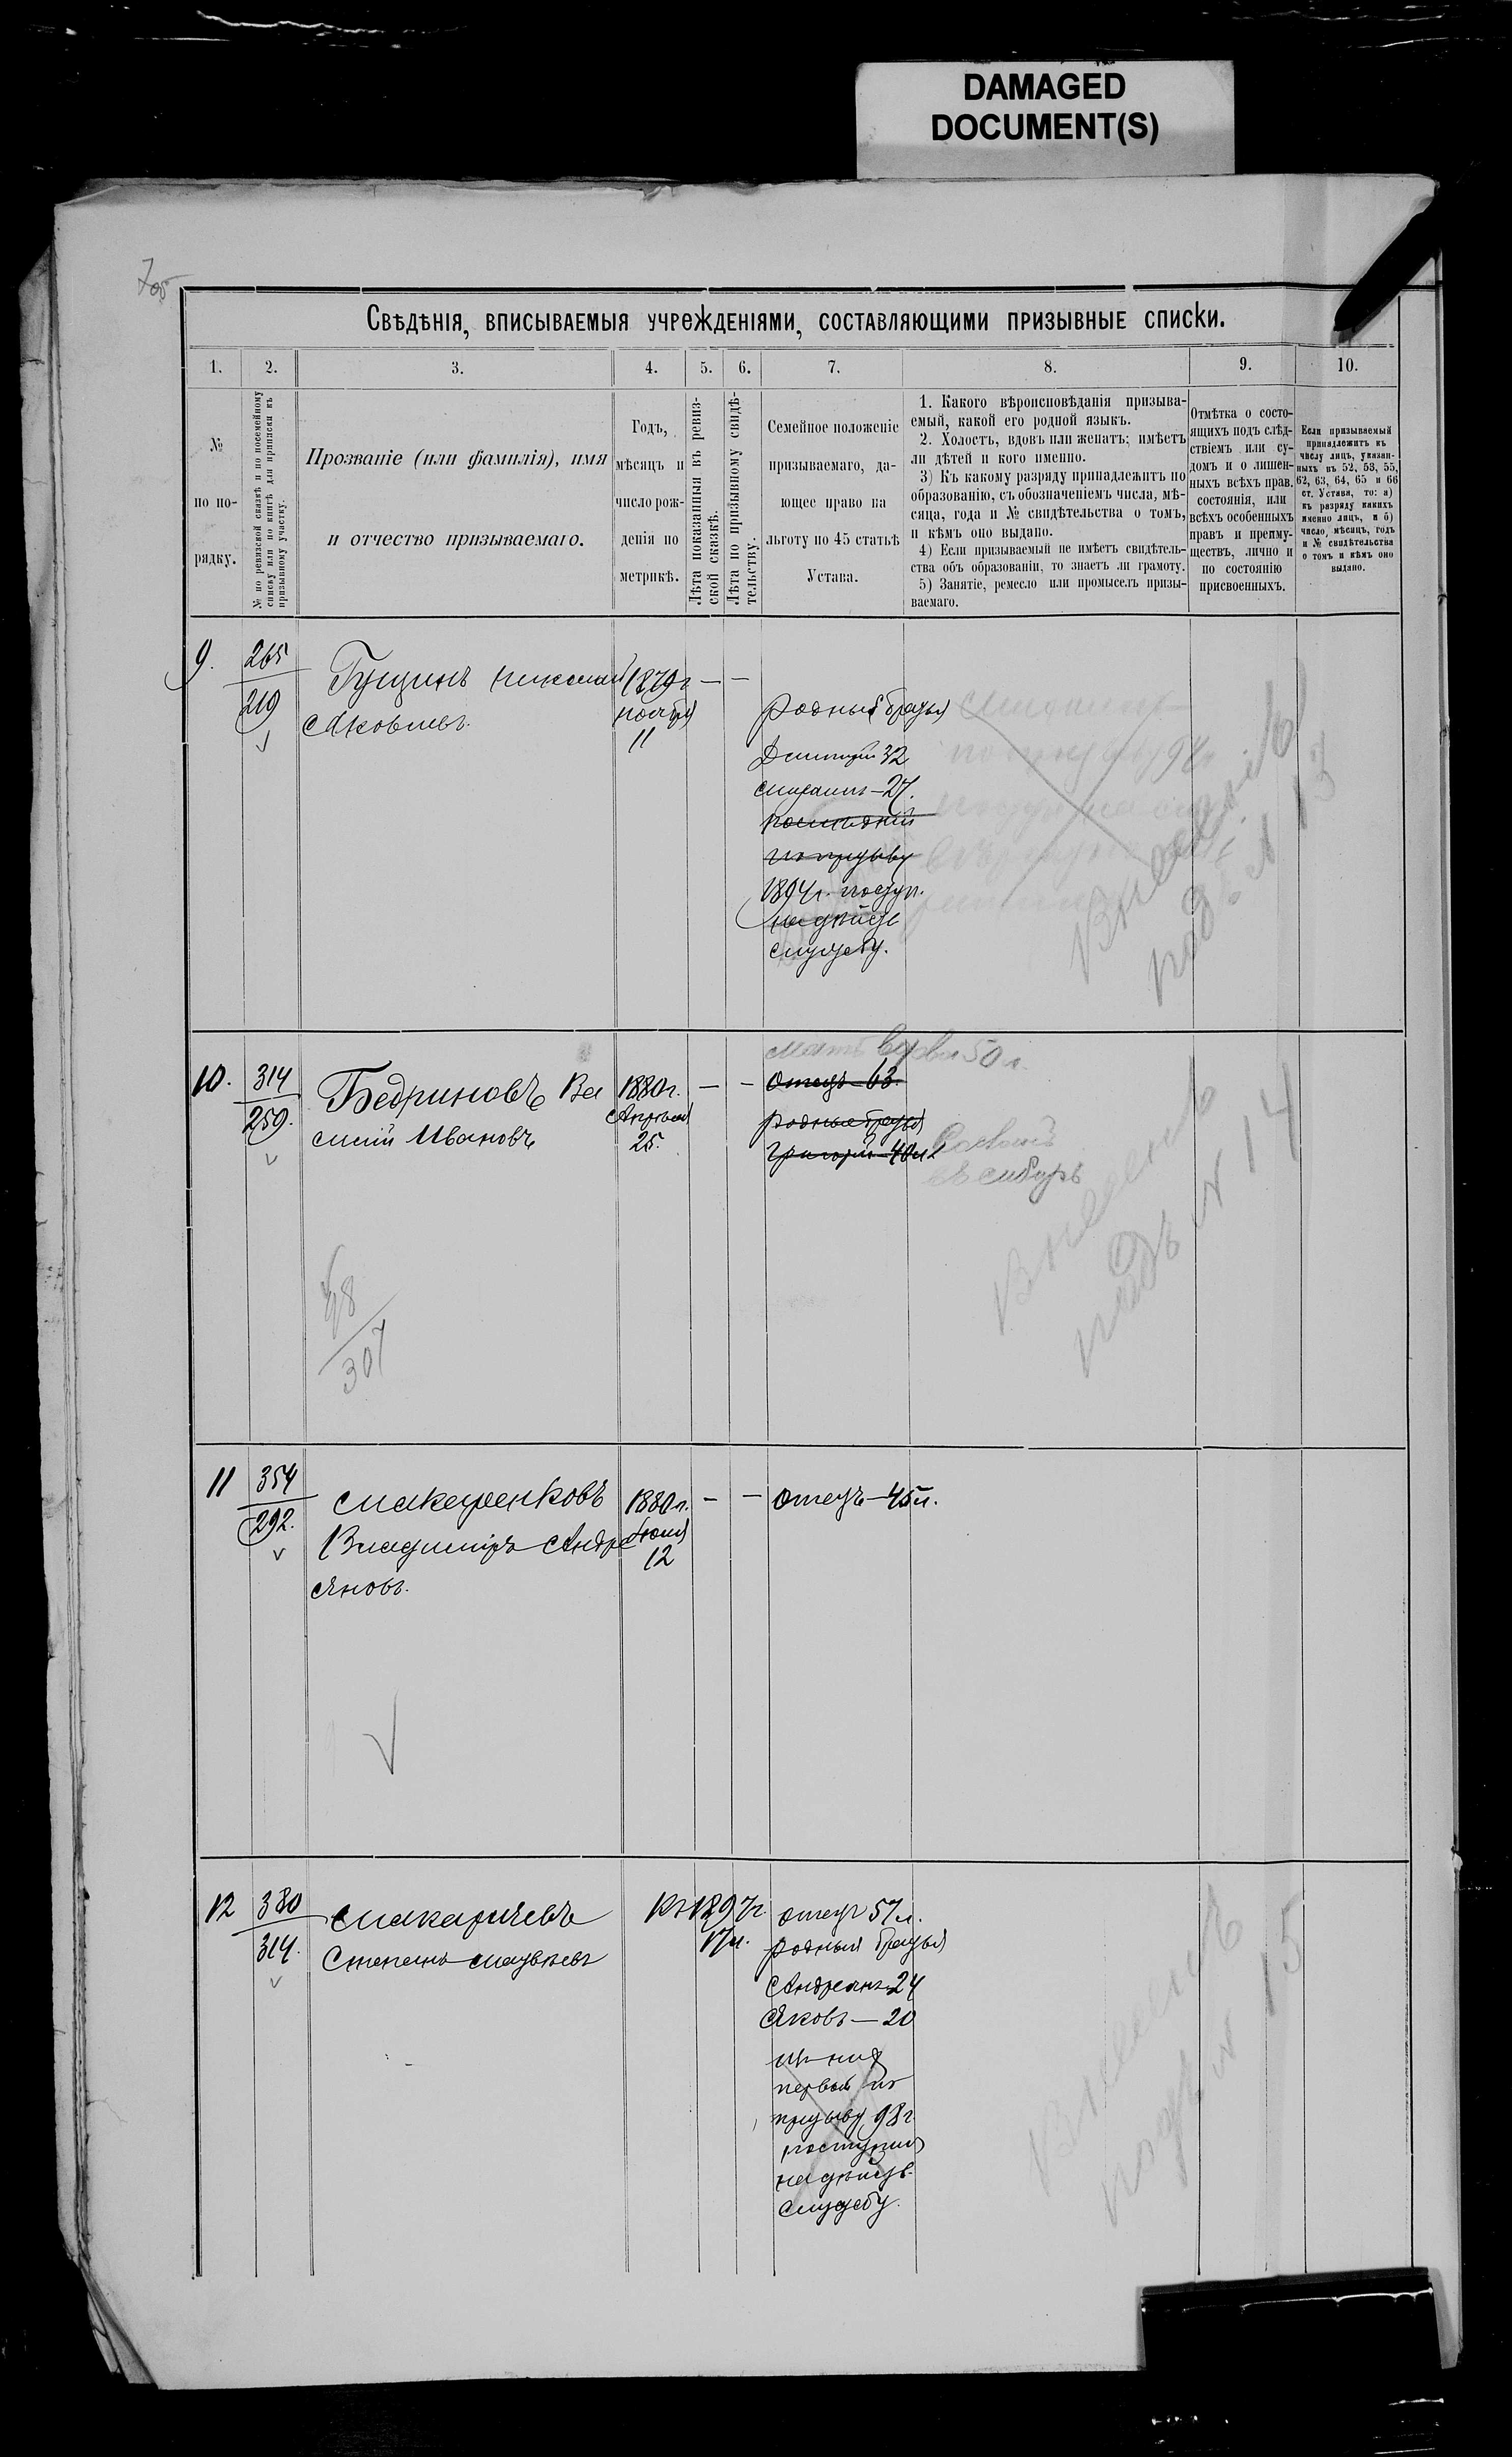 DAMAGED
DOCUMENT(S)
Свѣдѣнія, вписываемыя учрежденіями, составляющими призывные списки.
1. 2. 3. 4. 5. 6. 7. 8. 9. 10.
№
по по-
рядку.
№ по ревизской сказкѣ и по посемейному
списку или по книгѣ для приписки къ
призывному участку.
Прозваніе (или фамилія), имя
и отчество призываемаго.
Годъ,
мѣсяцъ и
число рож-
денія по
метрикѣ.
Лѣта показанныя въ ревиз-
ской сказкѣ.
Лѣта по призывному свидѣ-
тельству.
Семейное положеніе
призываемаго, да-
ющее право на
льготу по 45 статьѣ
Устава.
1. Какого вѣроисповѣданія призыва-
емый, какой его родной языкъ.
2. Холостъ, вдовъ или женатъ; имѣетъ
ли дѣтей и кого именно.
3) Къ какому разряду принадлежитъ по
образованію, съ обозначеніемъ числа, мѣ-
сяца, года и № свидѣтельства о томъ,
и кѣмъ оно выдано.
4) Если призываемый не имѣетъ свидѣтель-
ства объ образованіи, то знаетъ ли грамоту.
5) Занятіе, ремесло или промыселъ призы-
ваемаго.
Отмѣтка о состо-
ящихъ подъ слѣд-
ствіемъ или су-
домъ и о лишен-
ныхъ всѣхъ прав.
состоянія, или
всѣхъ особенныхъ
правъ и преиму-
ществъ, лично и
по состоянію
присвоенныхъ.
Если призываемый
принадлежитъ къ
числу лицъ, указан-
ныхъ въ 52, 53, 55,
62, 63, 64, 65 и 66
ст. Устава, то: а)
къ разряду какихъ
именно лицъ, и б)
число, мѣсяцъ, годъ
и № свидѣтельства
о томъ и кѣмъ оно
выдано.
9. 265
219
Гущинъ Николай
Яковлевъ.
1879г
ноября
11
— —
родныя братья
Дмитрій 32
27.
последній
по призыву
1894г. поступ.
на дѣйств
службу.
Внесенъ
подъ № 13
10. 314
259.
Бедриновъ Ва
силій Ивановъ
1880г.
Апрѣля
25.
— —
мать вдова 50 л.
Отецъ—63.
родные братья
Григорій—40л
въ сибирь
Внесенъ
подъ № 14
307
11 354
292.
Макаренковъ
Владиміръ Андре
яновъ.
1880г.
Іюля
12
— —
Отецъ—45л.
12 380
314.
Макаричевъ
Степанъ Матвѣевъ
Къ 1897г.
17л.
отецъ 57л.
родныя братья
Андреянъ 24
Яковъ—20
из них
первый по
призыву 98г
поступил
на дѣйств.
службу.
Внесенъ
подъ № 15